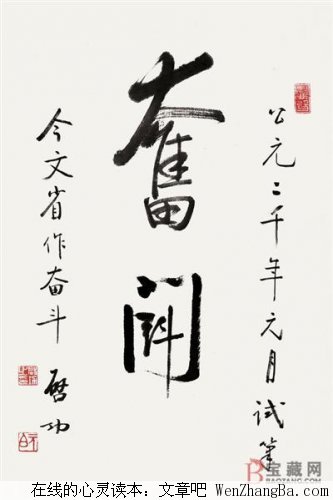 公元二千年元月试笔
奮鬥
今文省作奋斗
启功
宝藏网
BAOZANG.COM
在线的心灵读本：文章吧 WenZhangBa.com